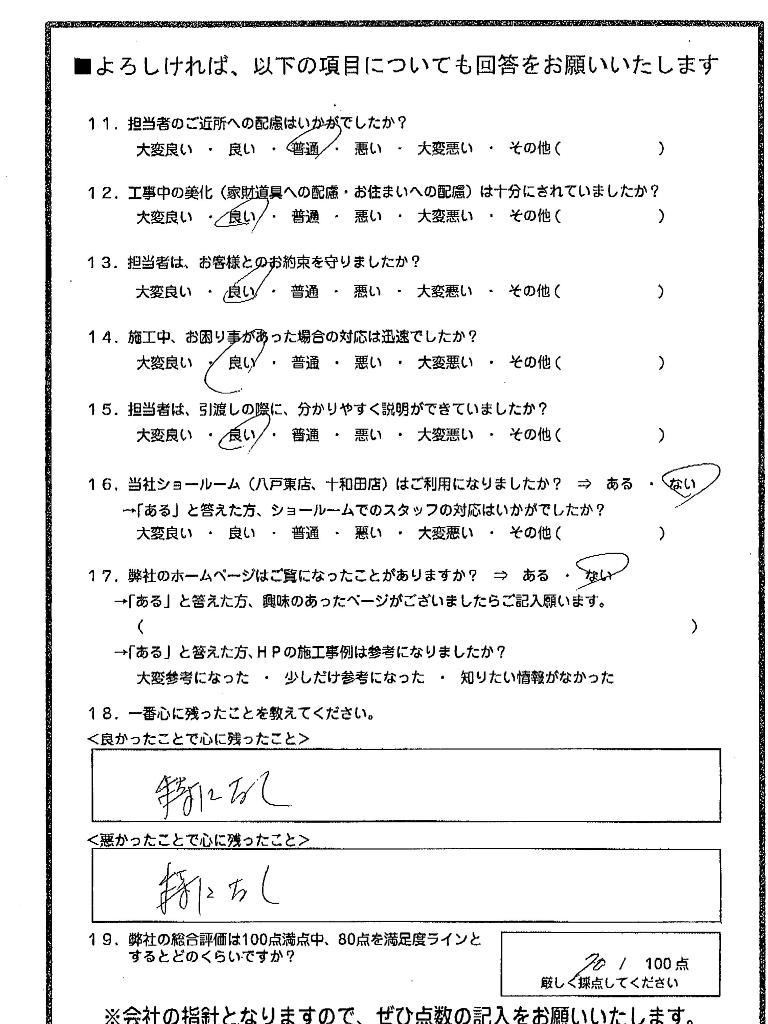 ■よろしければ、以下の項目についても回答をお願いいたします
11．担当者のご近所への配慮はいかがでしたか？
大変良い ・ 良い ・ 普通 ・ 悪い ・ 大変悪い ・ その他（　　　　　　　）
12．工事中の美化（家財道具への配慮・お住まいへの配慮）は十分にされていましたか？
大変良い ・ 良い ・ 普通 ・ 悪い ・ 大変悪い ・ その他（　　　　　　　）
13．担当者は、お客様とのお約束を守りましたか？
大変良い ・ 良い ・ 普通 ・ 悪い ・ 大変悪い ・ その他（　　　　　　　）
14．施工中、お困り事があった場合の対応は迅速でしたか？
大変良い ・ 良い ・ 普通 ・ 悪い ・ 大変悪い ・ その他（　　　　　　　）
15．担当者は、引渡しの際に、分かりやすく説明ができていましたか？
大変良い ・ 良い ・ 普通 ・ 悪い ・ 大変悪い ・ その他（　　　　　　　）
16．当社ショールーム（八戸東店、十和田店）はご利用になりましたか？ ⇒ ある ・ ない
→「ある」と答えた方、ショールームでのスタッフの対応はいかがでしたか？
大変良い ・ 良い ・ 普通 ・ 悪い ・ 大変悪い ・ その他（　　　　　　　）
17．弊社のホームページはご覧になったことがありますか？ ⇒ ある ・ ない
→「ある」と答えた方、興味のあったページがございましたらご記入願います。
（　　　　　　　　　　　　　　　　　　　　　　　　　　　　）
→「ある」と答えた方、ＨＰの施工事例は参考になりましたか？
大変参考になった ・ 少しだけ参考になった ・ 知りたい情報がなかった
18．一番心に残ったことを教えてください。
＜良かったことで心に残ったこと＞
特になし
＜悪かったことで心に残ったこと＞
特になし
19．弊社の総合評価は100点満点中、80点を満足度ラインと
するとどのくらいですか？
70 / 100点
厳しく採点してください
※会社の指針となりますので、ぜひ点数の記入をお願いいたします。